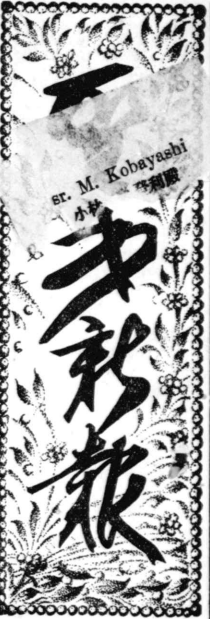 sr. M. Kobayashi
小林 利殿
州新報